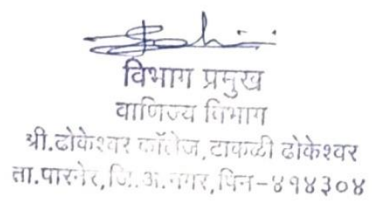 विभाग प्रमुख
वाणिज्य विभाग
श्री.ढोकेश्वर कॉलेज,टाकळी ढोकेश्वर
ता.पारनेर,जि.अ.नगर,पिन-४१४३०४